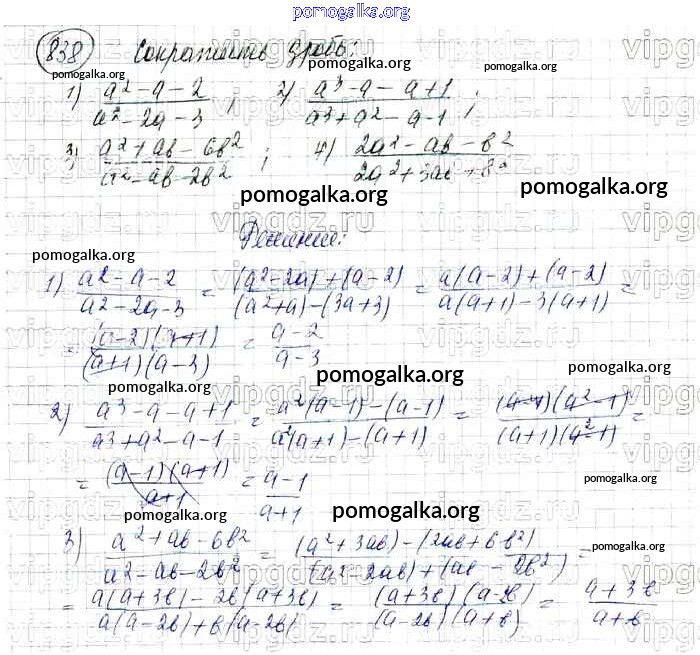 pomogalka.org
838 Сократить дробь:
pomogalka.org pomogalka.org pomogalka.org
1) a²-a-2 / a²-2a-3 ; 2) a³-a-a+1 / a³+a²-a-1 ;
pomogalka.org
3) a²+ab-6b² / a²-ab-2b² ; 4) 2a²-ab-b² / 2a²+3ab+b²
pomogalka.org pomogalka.org
Решение:
pomogalka.org
1) a²-a-2 / a²-2a-3 = (a²-2a)+(a-2) / (a²+a)-(3a+3) = a(a-2)+(a-2) / a(a+1)-3(a+1) =
= (a-2)(a+1) / (a+1)(a-3) = a-2 / a-3
pomogalka.org pomogalka.org pomogalka.org
2) a³-a-a+1 / a³+a²-a-1 = a²(a-1)-(a-1) / a²(a+1)-(a+1) = (a-1)(a²-1) / (a+1)(a²-1) =
= (a-1)(a+1) / a+1 = a-1 / a+1
pomogalka.org pomogalka.org pomogalka.org
3) a²+ab-6b² / a²-ab-2b² = (a²+3ab)-(2ab+6b²) / (a²-2ab)+(ab-2b²) =
pomogalka.org
= a(a+3b)-2b(a+3b) / a(a-2b)+b(a-2b) = (a+3b)(a-2b) / (a-2b)(a+b) = a+3b / a+b
vipgdz.ru